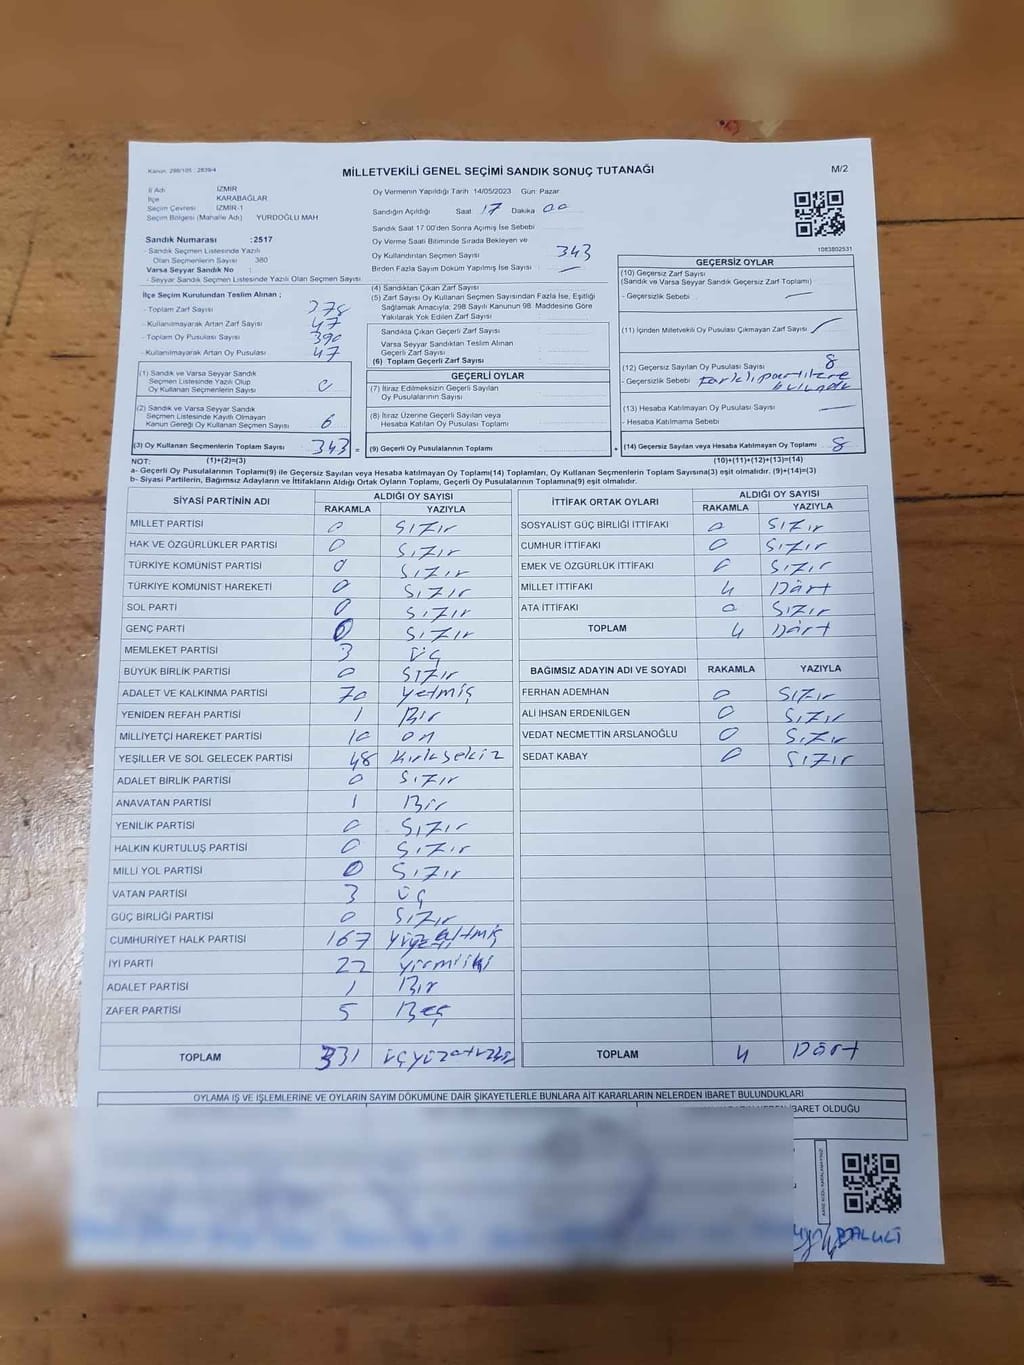 Kanun: 298/105 : 2839/4
MİLLETVEKİLİ GENEL SEÇİMİ SANDIK SONUÇ TUTANAĞI
M/2
İl Adı İZMİR
İlçe KARABAĞLAR
Seçim Çevresi İZMİR-1
Seçim Bölgesi (Mahalle Adı) YURDOĞLU MAH
Sandık Numarası :2517
- Sandık Seçmen Listesinde Yazılı
Olan Seçmenlerin Sayısı 380
Varsa Seyyar Sandık No :
- Seyyar Sandık Listesinde Yazılı Olan Seçmen Sayısı
Oy Vermenin Yapıldığı Tarih :14/05/2023 Gün: Pazar
Sandığın Açıldığı Saat 17 Dakika 00
Sandık Saat 17:00'den Sonra Açımış İse Sebebi
Oy Verme Saati Bitiminde Sırada Bekleyen ve
Oy Kullandırılan Seçmen Sayısı 343
Birden Fazla Sayım Döküm Yapılmış İse Sayısı —
1083802531
İlçe Seçim Kurulundan Teslim Alınan ;
- Toplam Zarf Sayısı 378
- Kullanılmayarak Artan Zarf Sayısı 47
- Toplam Oy Pusulası Sayısı 390
- Kullanılmayarak Artan Oy Pusulası 47
(1) Sandık ve Varsa Seyyar Sandık
Seçmen Listesinde Yazılı Olup
Oy Kullanan Seçmenlerin Sayısı
(2) Sandık ve Varsa Seyyar Sandık
Seçmen Listesinde Kayıtlı Olmayan
Kanun Gereği Oy Kullanan Seçmen Sayısı 6
(3) Oy Kullanan Seçmenlerin Toplam Sayısı 343 =
(4) Sandıktan Çıkan Zarf Sayısı
(5) Zarf Sayısı Oy Kullanan Seçmen Sayısından Fazla İse, Eşitliği
Sağlamak Amacıyla; 298 Sayılı Kanunun 98. Maddesine Göre
Yakılarak Yok Edilen Zarf Sayısı
Sandıkta Çıkan Geçerli Zarf Sayısı
Varsa Seyyar Sandıktan Teslim Alınan
Geçerli Zarf Sayısı
(6) Toplam Geçerli Zarf Sayısı
GEÇERLİ OYLAR
(7) İtiraz Edilmeksizin Geçerli Sayılan
Oy Pusulalarının Sayısı
(8) İtiraz Üzerine Geçerli Sayılan veya
Hesaba Katılan Oy Pusulası Sayısı
(9) Geçerli Oy Pusulalarının Toplamı +
GEÇERSİZ OYLAR
(10) Geçersiz Zarf Sayısı
(Sandık ve Varsa Seyyar Sandık Geçersiz Zarf Toplamı)
- Geçersizlik Sebebi —
(11) İçinden Milletvekili Oy Pusulası Çıkmayan Zarf Sayısı
(12) Geçersiz Sayılan Oy Pusulası Sayısı 8
- Geçersizlik Sebebi Farklı partilere
(13) Hesaba Katılmayan Oy Pusulası Sayısı —
- Hesaba Katılmama Sebebi
(14) Geçersiz Sayılan veya Hesaba Katılmayan Oy Toplamı 8
NOT: (1)+(2)=(3) (10)+(11)+(12)+(13)=(14)
a- Geçerli Oy Pusulalarının Toplamı(9) ile Geçersiz Sayılan veya Hesaba katılmayan Oy Toplamı(14) Toplamları, Oy Kullanan Seçmenlerin Toplam Sayısına(3) eşit olmalıdır. (9)+(14)=(3)
b- Siyasi Partilerin, Bağımsız Adayların ve İttifakların Aldığı Ortak Oyların Toplamı, Geçerli Oy Pusulalarının Toplamına(9) eşit olmalıdır.
SİYASİ PARTİNİN ADI ALDIĞI OY SAYISI
RAKAMLA YAZIYLA
MİLLET PARTİSİ 0 Sıfır
HAK VE ÖZGÜRLÜKLER PARTİSİ 0 Sıfır
TÜRKİYE KOMÜNİST PARTİSİ 0 Sıfır
TÜRKİYE KOMÜNİST HAREKETİ 0 Sıfır
SOL PARTİ 0 Sıfır
GENÇ PARTİ 0 Sıfır
MEMLEKET PARTİSİ 3 Üç
BÜYÜK BİRLİK PARTİSİ 0 Sıfır
ADALET VE KALKINMA PARTİSİ 70 Yetmiş
YENİDEN REFAH PARTİSİ 1 Bir
MİLLİYETÇİ HAREKET PARTİSİ 10 On
YEŞİLLER VE SOL GELECEK PARTİSİ 48 Kırksekiz
ADALET BİRLİK PARTİSİ 0 Sıfır
ANAVATAN PARTİSİ 1 Bir
YENİLİK PARTİSİ 0 Sıfır
HALKIN KURTULUŞ PARTİSİ 0 Sıfır
MİLLİ YOL PARTİSİ 0 Sıfır
VATAN PARTİSİ 3 Üç
GÜÇ BİRLİĞİ PARTİSİ 0 Sıfır
CUMHURİYET HALK PARTİSİ 167
İYİ PARTİ 22 yirmiiki
ADALET PARTİSİ 1 Bir
ZAFER PARTİSİ 5 Beş
TOPLAM 331
İTTİFAK ORTAK OYLARI ALDIĞI OY SAYISI
RAKAMLA YAZIYLA
SOSYALİST GÜÇ BİRLİĞİ İTTİFAKI 0 Sıfır
CUMHUR İTTİFAKI 0 Sıfır
EMEK VE ÖZGÜRLÜK İTTİFAKI 0 Sıfır
MİLLET İTTİFAKI 4 Dört
ATA İTTİFAKI 0 Sıfır
TOPLAM 4 Dört
BAĞIMSIZ ADAYIN ADI VE SOYADI RAKAMLA YAZIYLA
FERHAN ADEMHAN 0 Sıfır
ALİ İHSAN ERDENİLGEN 0 Sıfır
VEDAT NECMETTİN ARSLANOĞLU 0 Sıfır
SEDAT KABAY 0 Sıfır
TOPLAM 4 Dört
OYLAMA İŞ VE İŞLEMLERİNE VE OYLARIN SAYIM DÖKÜMÜNE DAİR ŞİKAYETLERLE BUNLARA AİT KARARLARIN NELERDEN İBARET BULUNDUKLARI
İBARET OLDUĞU